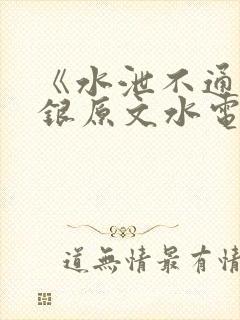 《水泄不通
銀原文水電
道無情最有情